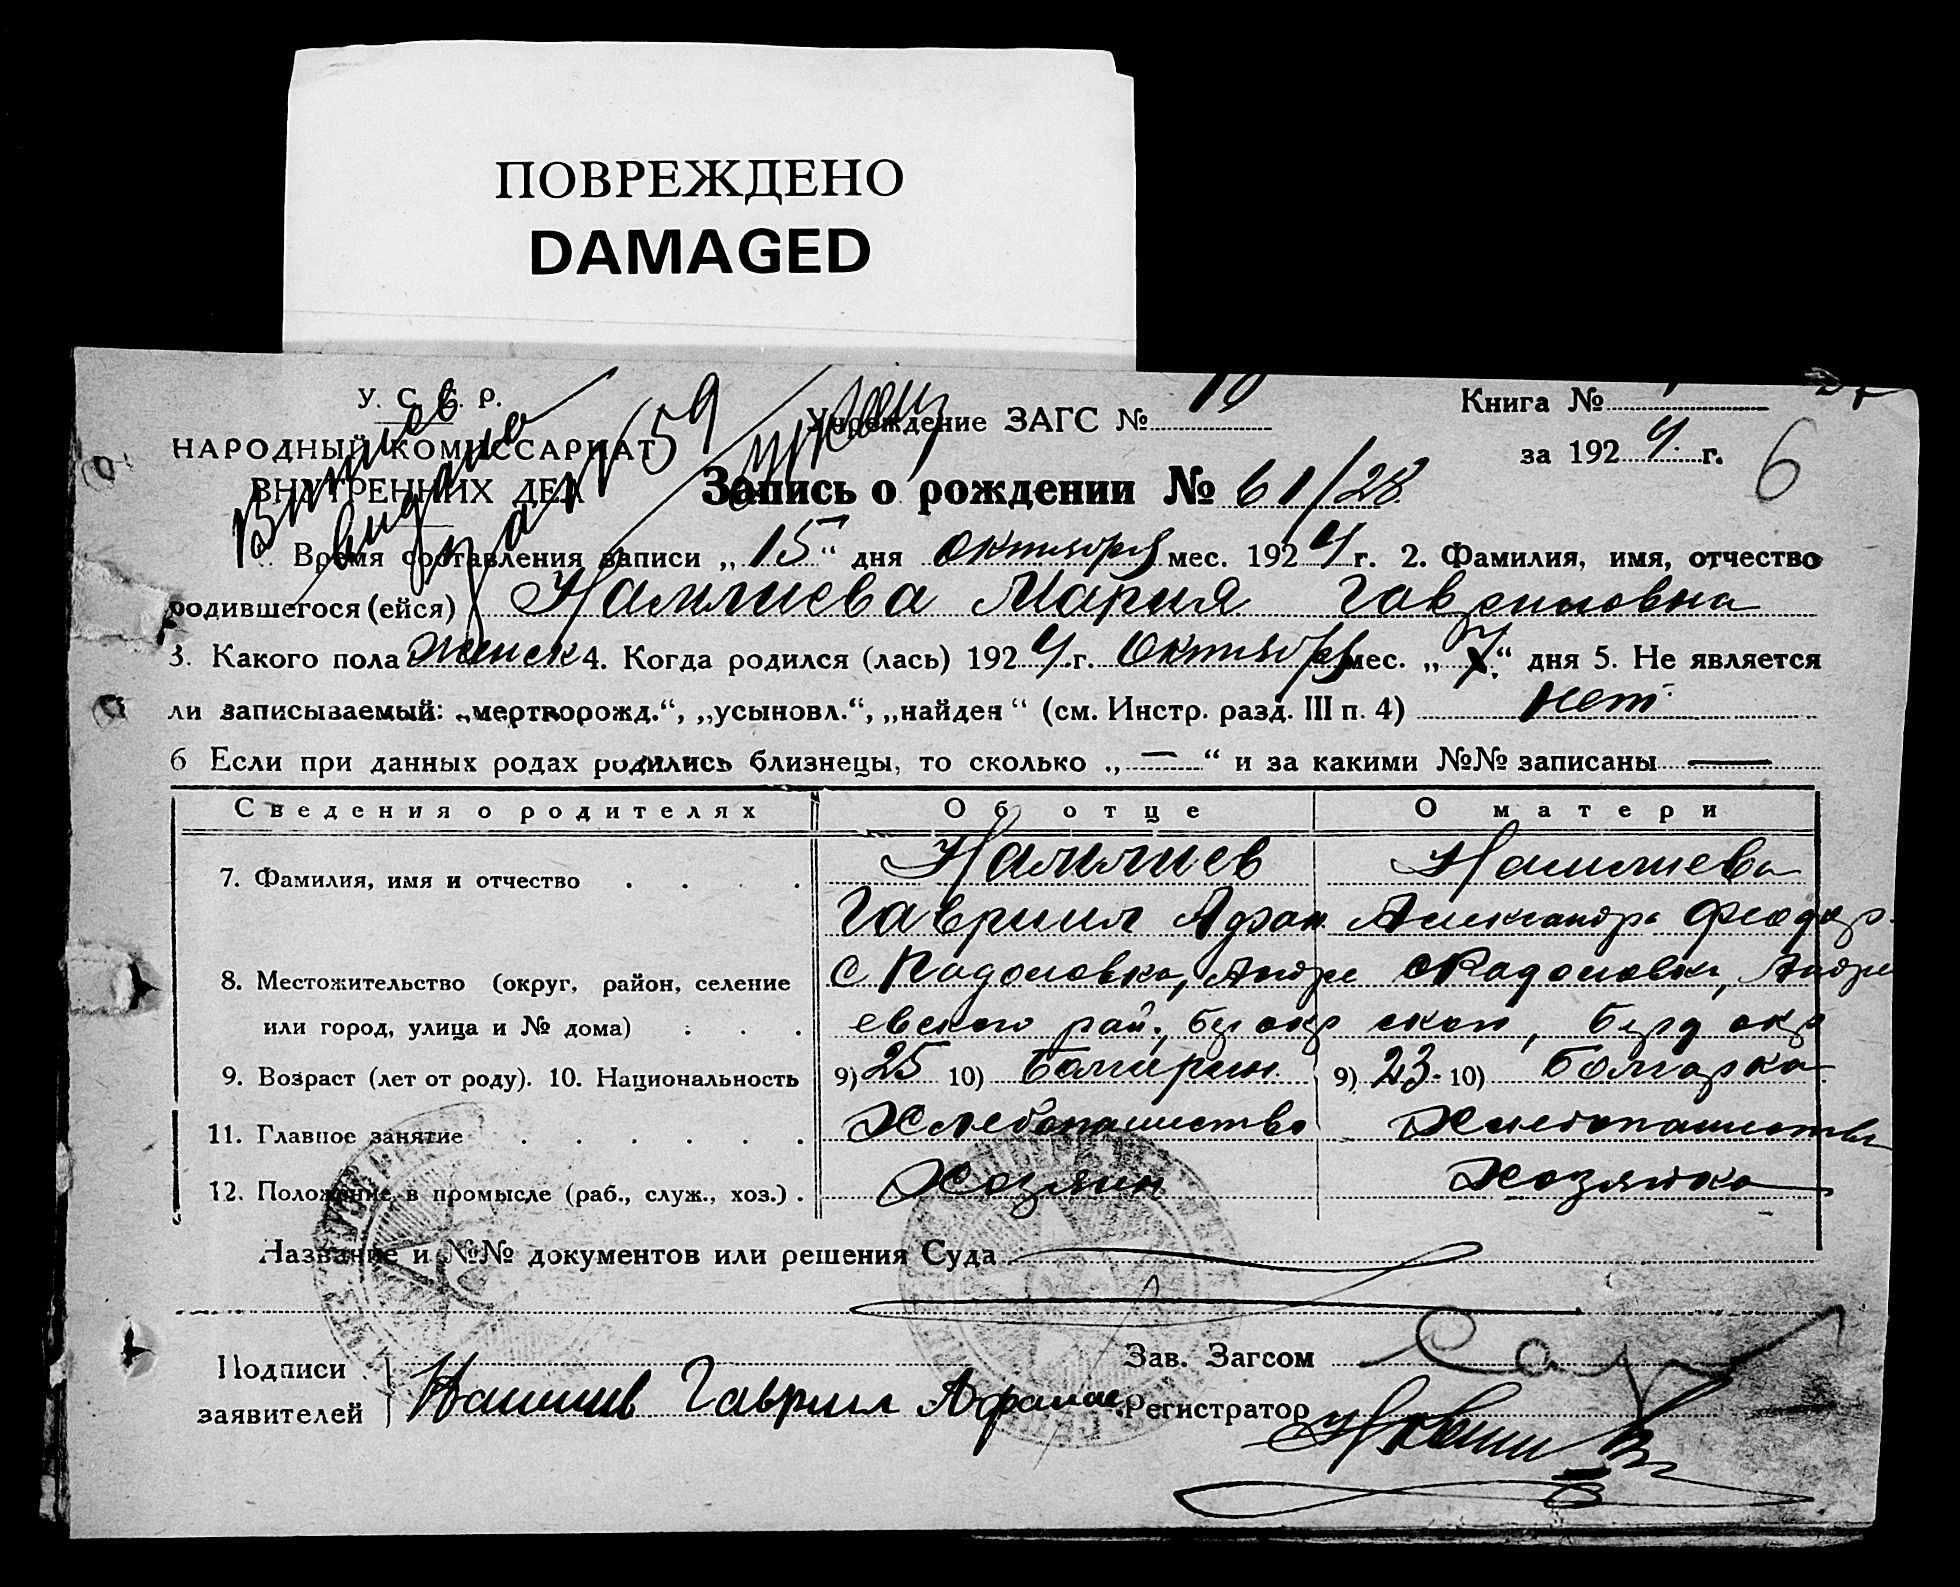 ПОВРЕЖДЕНО
DAMAGED
У. С. С. Р.
НАРОДНЫЙ КОМИССАРИАТ
ВНУТРЕННИХ ДЕЛ
Учреждение ЗАГС №
Книга №
за 1924 г.
6
59
Запись о рождении № 61/28
Время составления записи „15“ дня Октября мес. 1924 г. 2. Фамилия, имя, отчество
родившегося (ейся) Мария Гавриловна
3. Какого пола женск 4. Когда родился (лась) 1924 г. Октября мес. „7“ дня 5. Не является
ли записываемый: „мертворожд.“, „усыновл.“, „найден“ (см. Инстр. разд. III п. 4) нет
6 Если при данных родах родились близнецы, то сколько „—“ и за какими №№ записаны —
Сведения о родителях Об отце О матери
7. Фамилия, имя и отчество
Гавриил Афан. Александра Феодор.
8. Местожительство (округ, район, селение с Радоловка, Андре с Радоловка, Андре
или город, улица и № дома) евского рай., Бер окр ского, Берд окр
9. Возраст (лет от роду). 10. Национальность 9) 25 10) Болгарин 9) 23 10) Болгарка
11. Главное занятие Хлебопашество Хлебопашество
12. Положение в промысле (раб., служ., хоз.) Хозяин Хозяйка
Название и №№ документов или решения Суда
Подписи
заявителей Гаврил Афанас.
Зав. Загсом
Регистратор